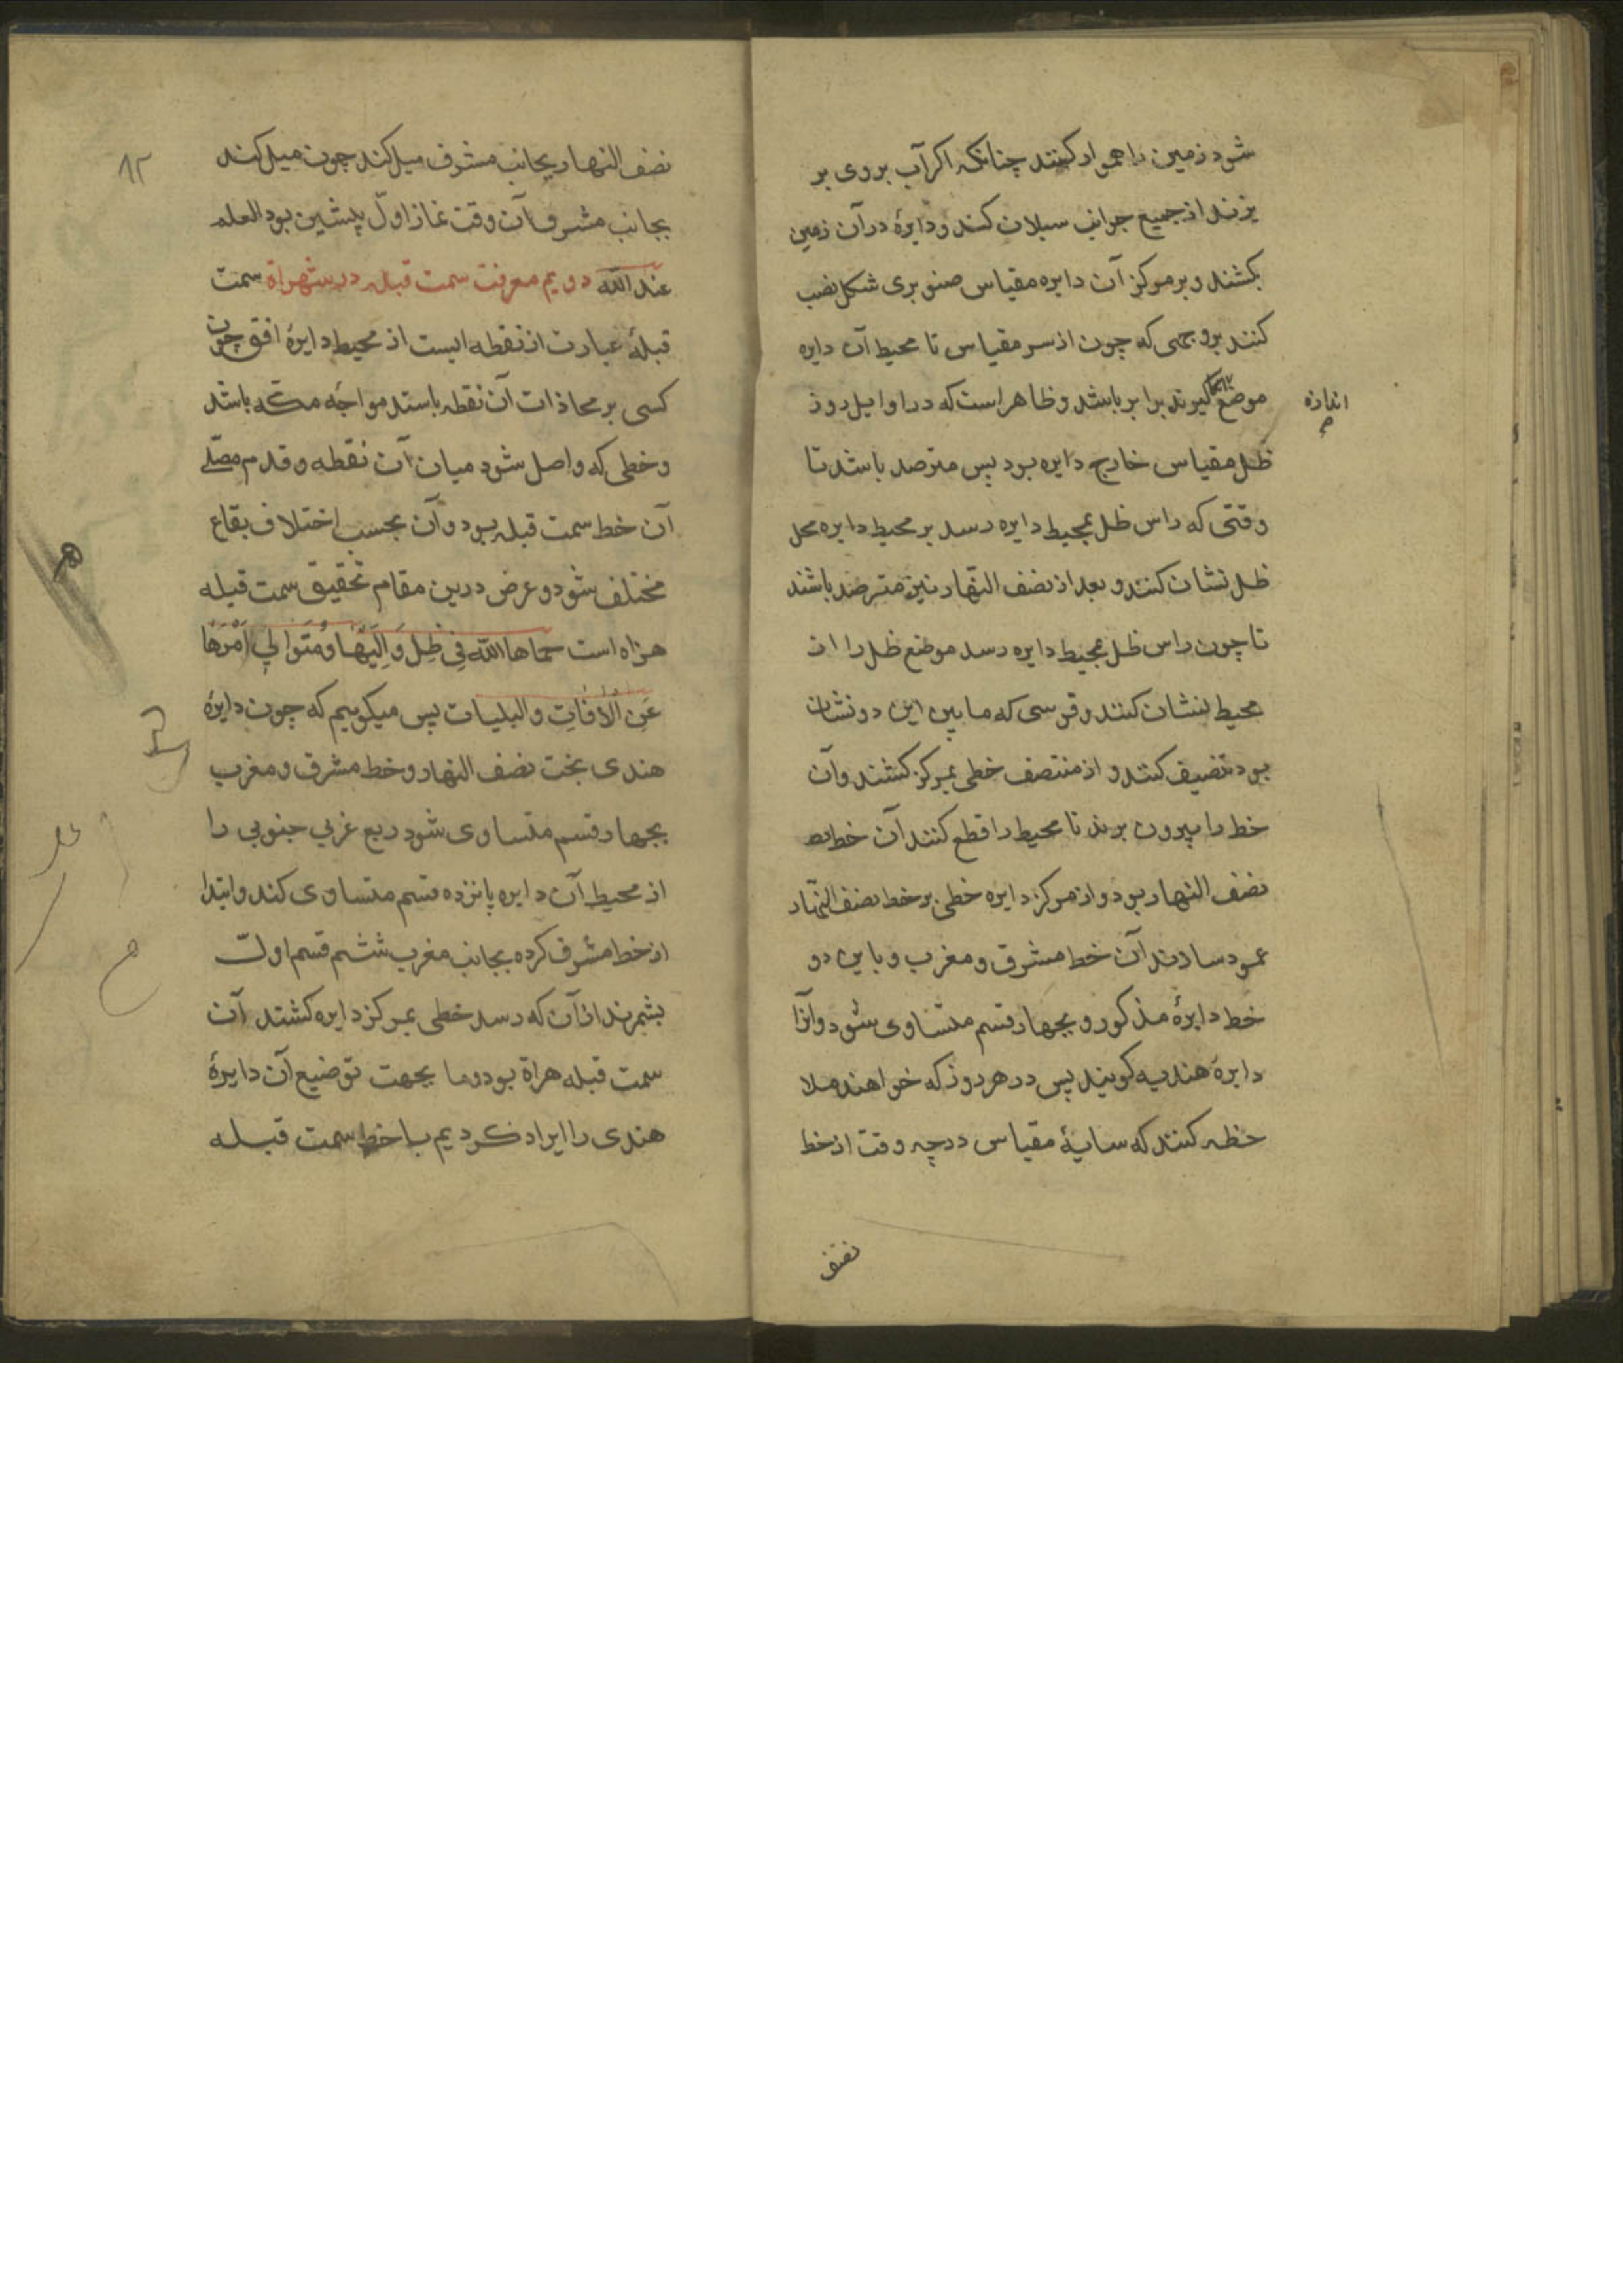 شود زمین را هموار کنند چنانکه اکر آب بروی بر
یزند از جمیع جوانب سیلان کند و دایرهٔ در آن زمین
بکشند و بر مرکز آن دایره مقیاس صنوبری شکل نصب
کنند بروجهی که چون از سر مقیاس تا محیط آن دایره
موضع کیرند برابر باشد و ظاهر است که در اوایل روز
اندازه
ظل مقیاس خارج دایره بود پس مترصد باشد تا
وقتی که راس ظل بمحیط دایره رسد بر محیط دایره محل
ظل نشان کنند و بعد از نصف النهار نیز مترصد باشند
تا چون راس ظل بمحیط دایره رسد موضع ظل را از
محیط نشان کنند و قوسی که ما بین این دو نشان
بود تنصیف کنند و از منتصف خطی بمرکز کشند و آن
خط را بیرون برند تا محیط را قطع کنند آن خط
نصف النهار بود و از مرکز دایره خطی بر خط نصف النهار
عمود سازند آن خط مشرق و مغرب و باین دو
خط دایرهٔ مذکور و بچهار قسم متساوی شود و آنرا
دایرهٔ هندیه کویند پس در هر روز که خواهند ملا
حظه کنند که سایهٔ مقیاس در چه وقت از خط
نصف
۱۲
نصف النهار بجانب مشرق میل کند چون میل کند
بجانب مشرق آن وقت نماز اول پیشین بود العلم
عند الله دویم معرفت سمت قبله در شهر هراة سمت
قبلهٔ عبارت از نقطه ایست از محیط دایرهٔ افق چون
کسی بر محاذات آن نقطه باستد مواجه مکه باشد
و خطی که واصل شود میان آن نقطه و قدم مصلی
آن خط سمت قبله بود و آن بحسب اختلاف بقاع
مختلف شود و غرض درین مقام تحقیق سمت قبله
هراه است حماها الله فی ظل وَالِیَها و مُتَوالِی اَمْرَها
عَنِ الآفاتِ والبلیات پس میکوییم که چون دایرهٔ
هندی بخت نصف النهار و خط مشرق و مغرب
بچهار قسم متساوی شود ربع غربی جنوبی را
از محیط آن دایره پانزده قسم متساوی کند و ابتدا
از خط مشرق کرده بجانب مغرب ششم قسم اول
بشمرند از آن که رسد خطی بمرکز دایره کشند آن
سمت قبله هراة بود و ما بجهت توضیع آن دایرهٔ
هندی را ایراد کردیم با خط سمت قبله